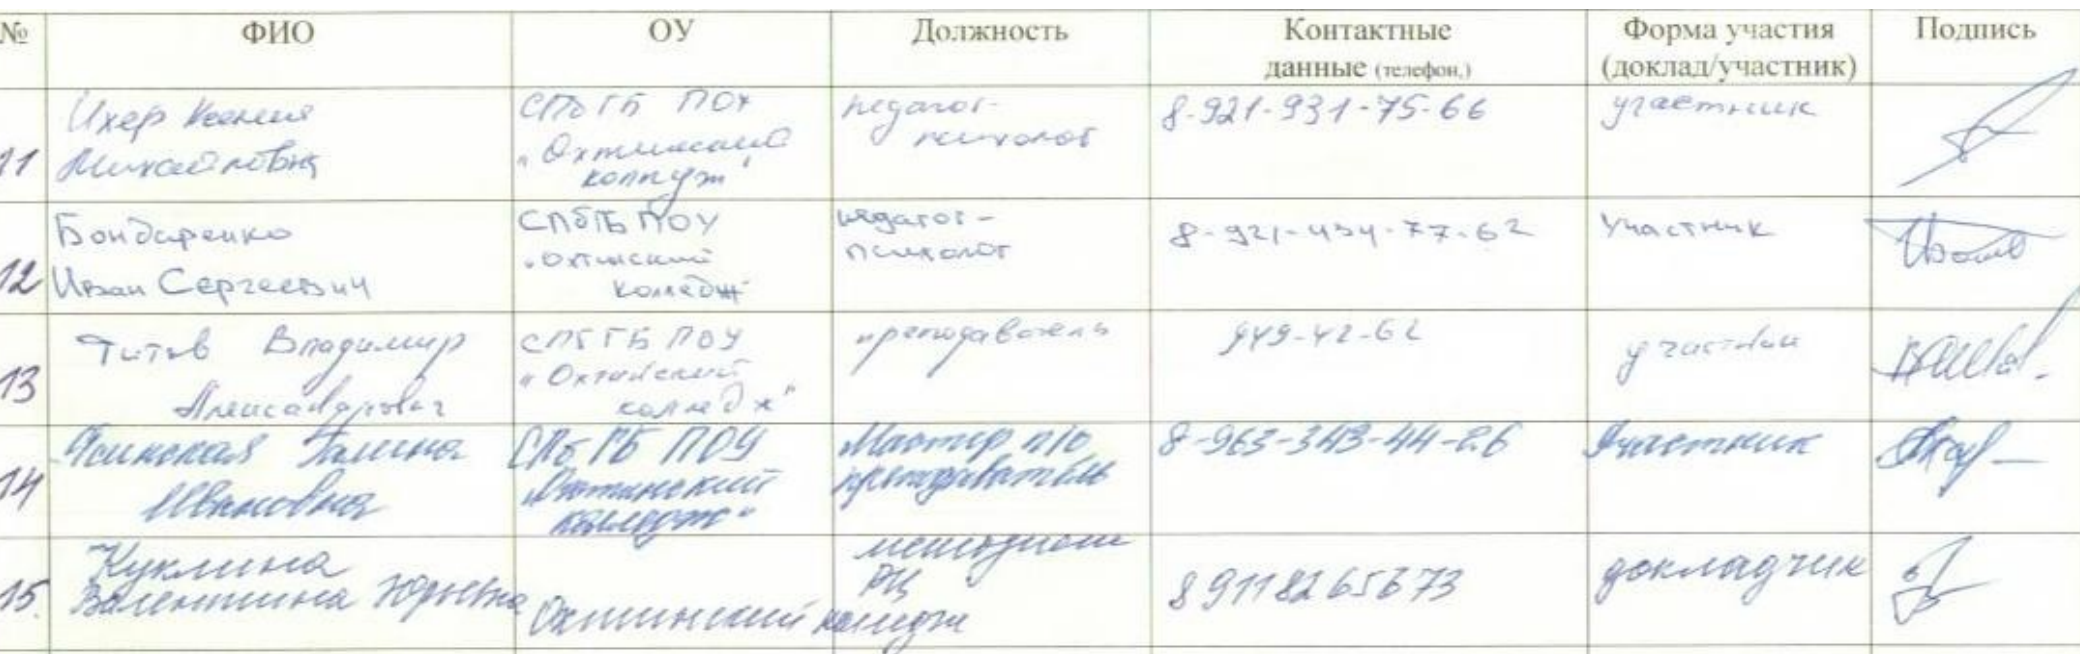 № ФИО ОУ Должность Контактные данные (телефон,) Форма участия (доклад/участник) Подпись
11 Ихер Ксения Михайловна СПб ГБ ПОУ "Охтинский колледж" педагог-психолог 8-921-931-75-66 участник
12 Бондаренко Иван Сергеевич СПбГБ ПОУ "Охтинский колледж педагог-психолог 8-921-434-77-62 Участник
13 Титов Владимир Александрович СПб ГБ ПОУ "Охтинский колледж" преподаватель 949-42-62 участник
14 Ясинская Галина Ивановна СПб ГБ ПОУ "Охтинский колледж" Мастер п/о преподаватель 8-963-343-44-26 Участник
15. Куклина Валентина Юрьевна Охтинский колледж методист РЦ 89118265673 докладчик